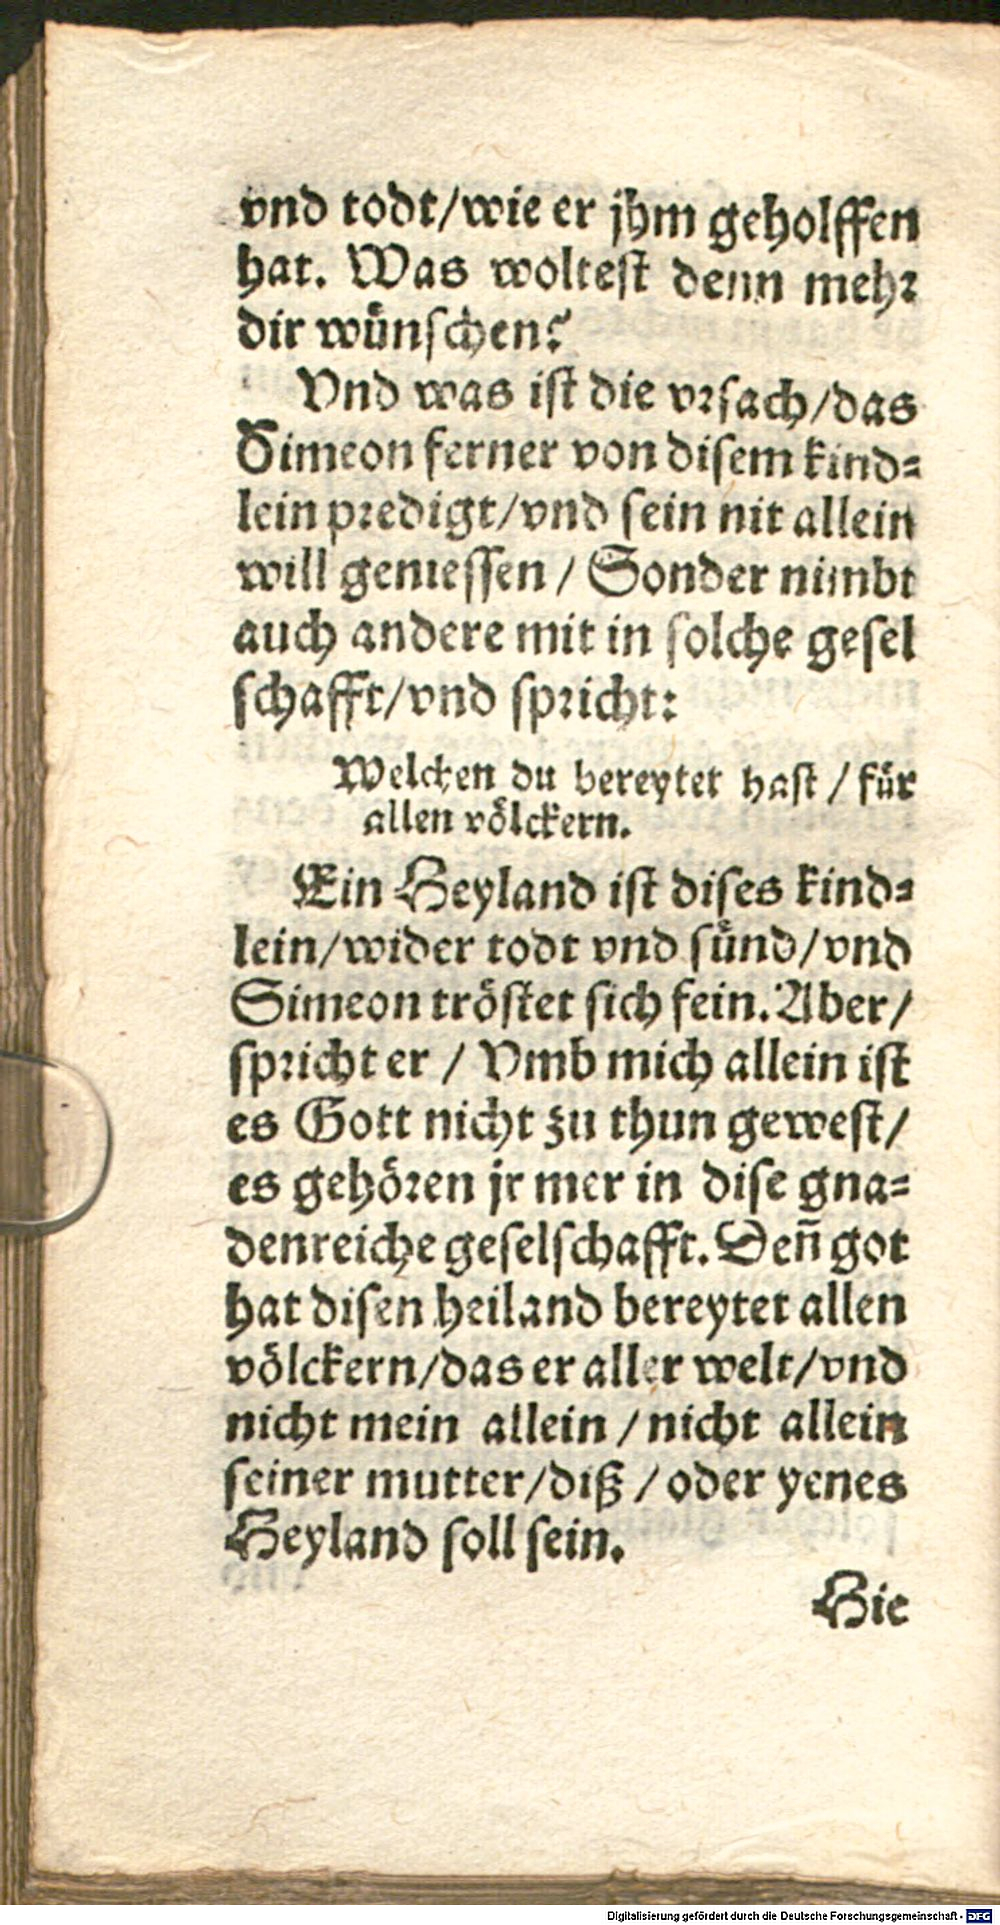 vnd todt/wie er jhm geholffen
hat. Was woltest denn mehr
dir wünschen?
Vnd was ist die vrsach/das
Simeon ferner von disem kind=
lein predigt/vnd sein nit allein
will geniessen / Sonder nimbt
auch andere mit in solche gesel
schafft/vnd spricht:
Welchen du bereytet hast / für
allen völckern.
Ein Heyland ist dises kind=
lein/wider todt vnd sünd/vnd
Simeon tröstet sich fein. Aber/
spricht er / Vmb mich allein ist
es Gott nicht zu thun gewest/
es gehören jr mer in dise gna=
denreiche geselschafft. Deñ got
hat disen heiland bereytet allen
völckern/das er aller welt/vnd
nicht mein allein / nicht allein
seiner mutter/diß / oder yenes
Heyland soll sein.
Hie
Digitalisierung gefördert durch die Deutsche Forschungsgemeinschaft - DFG